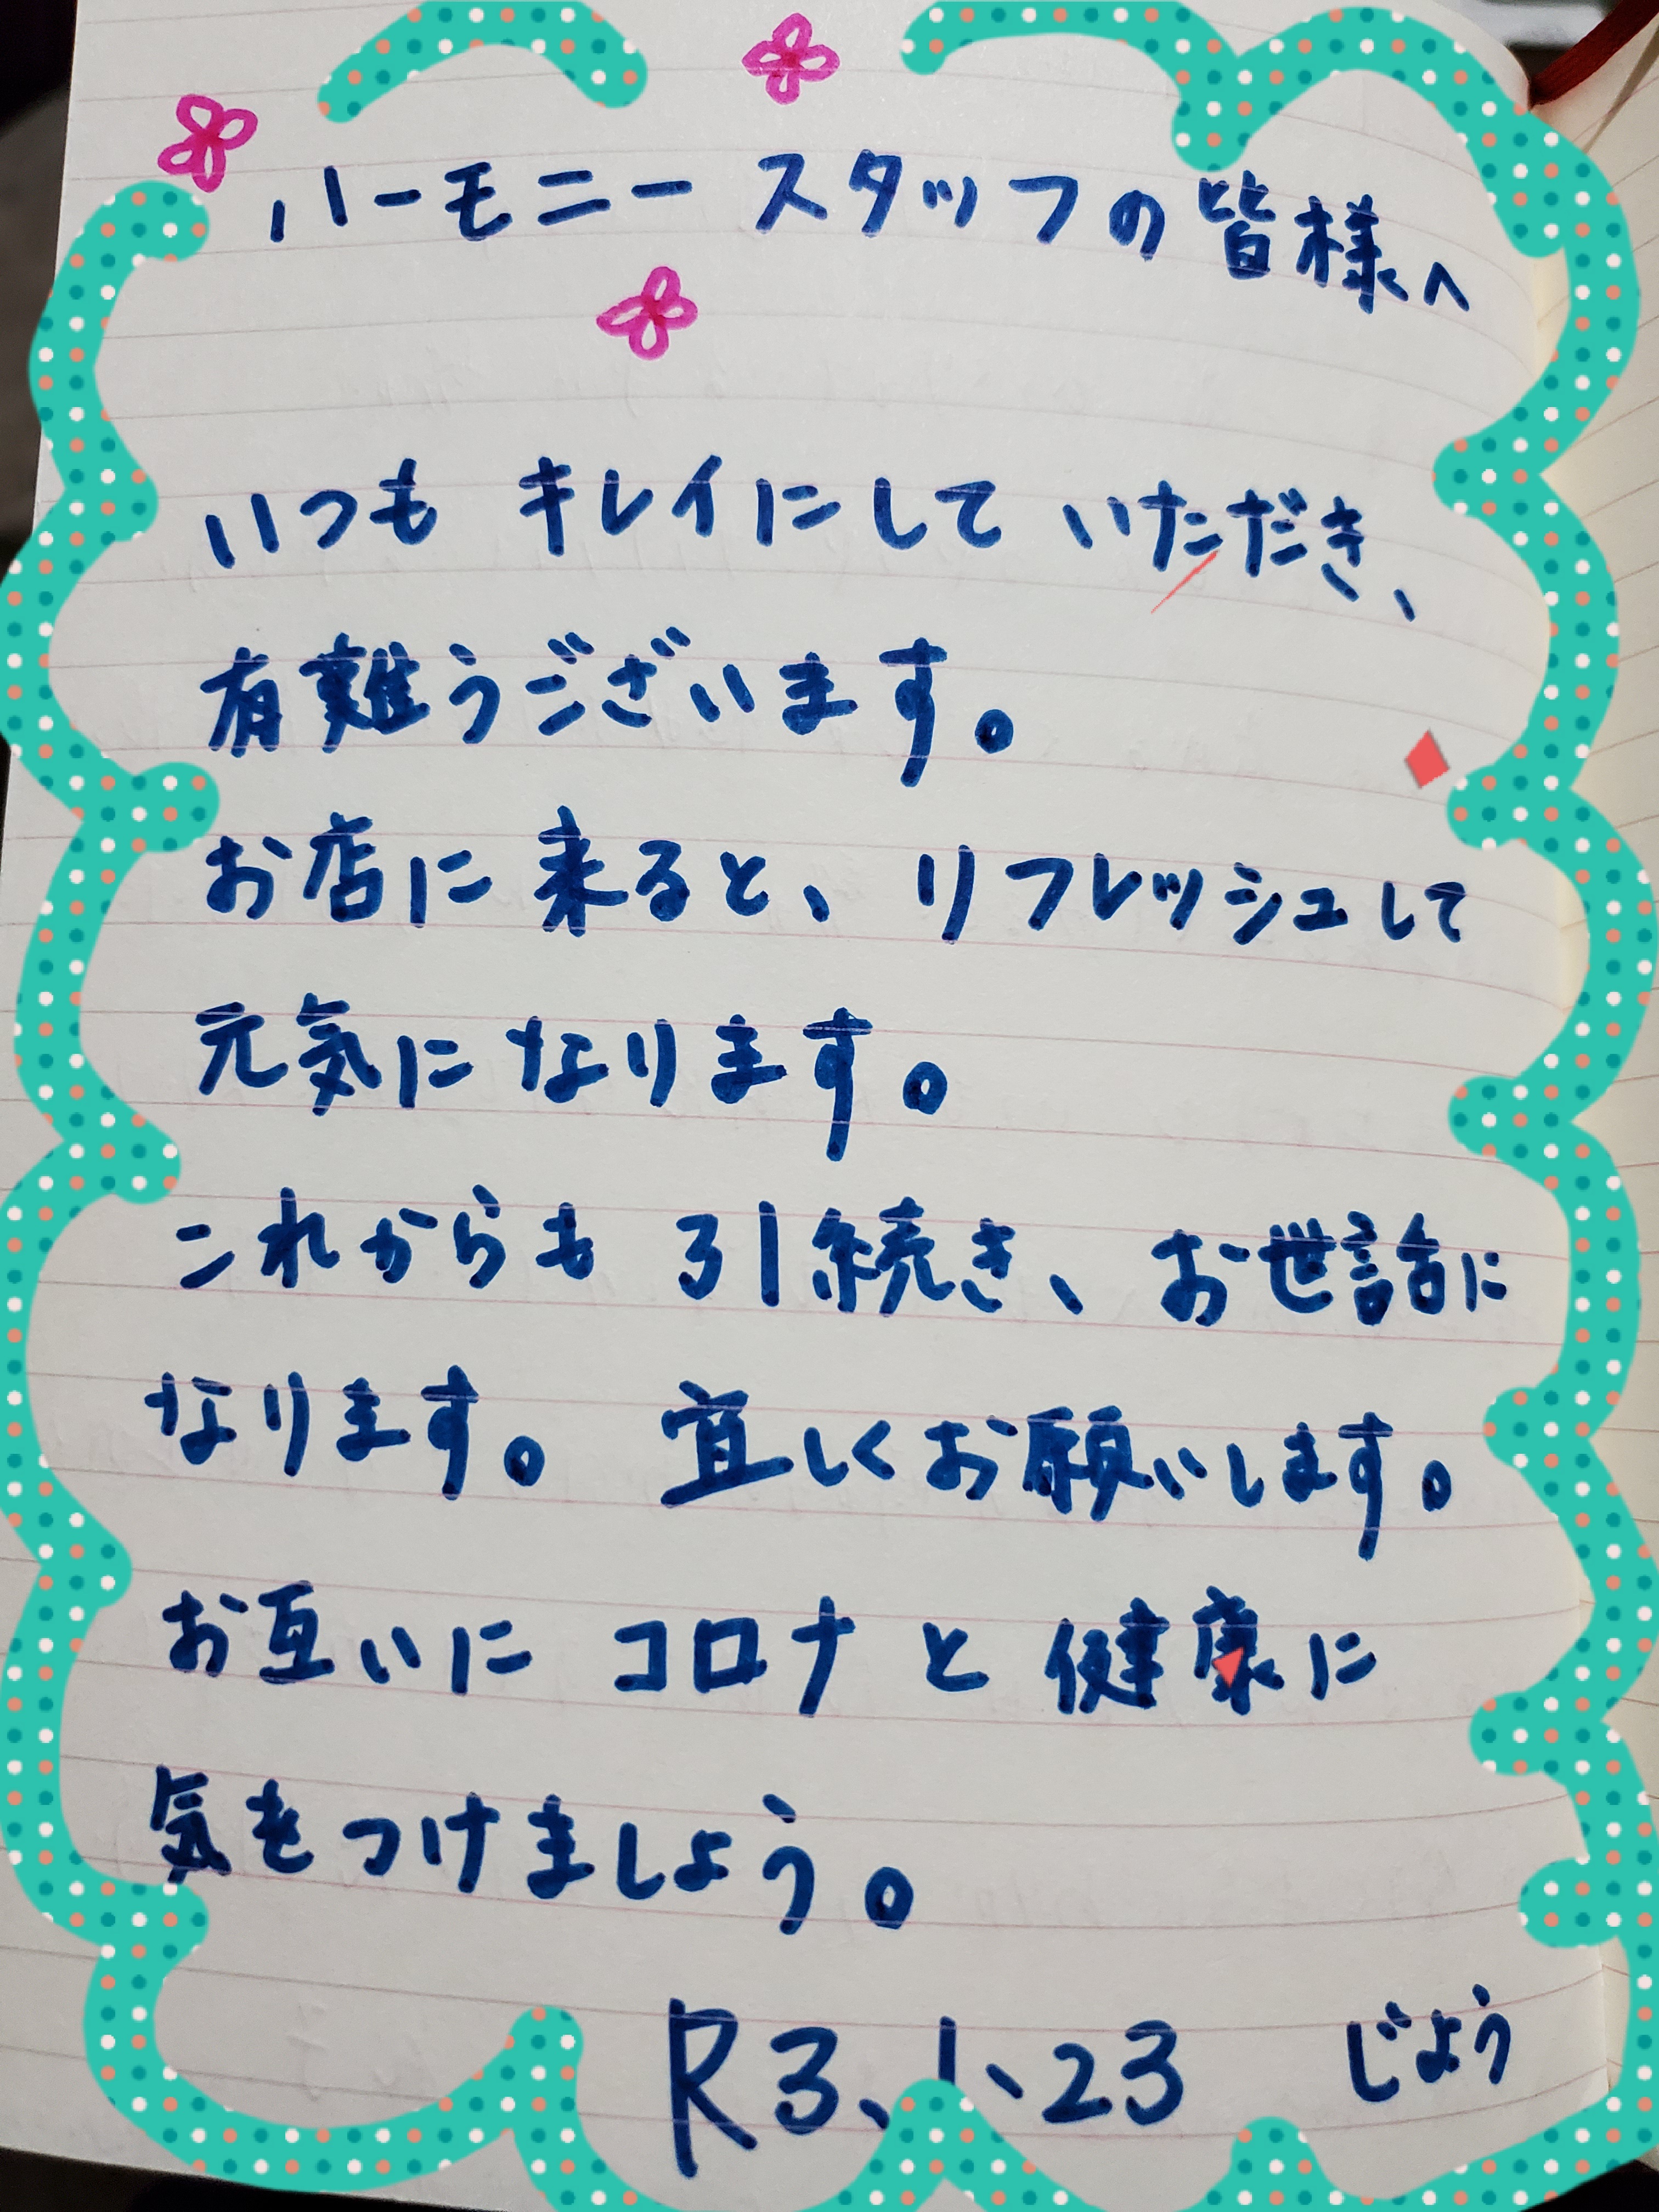 ハーモニー スタッフの皆様へ
いつも キレイにして いただき、
有難うございます。
お店に 来ると、リフレッシュして
元気に なります。
これからも 引続き、お世話に
なります。 宜しくお願いします。
お互いに コロナ と 健康に
気をつけましょう。
R3、1、23 じょう